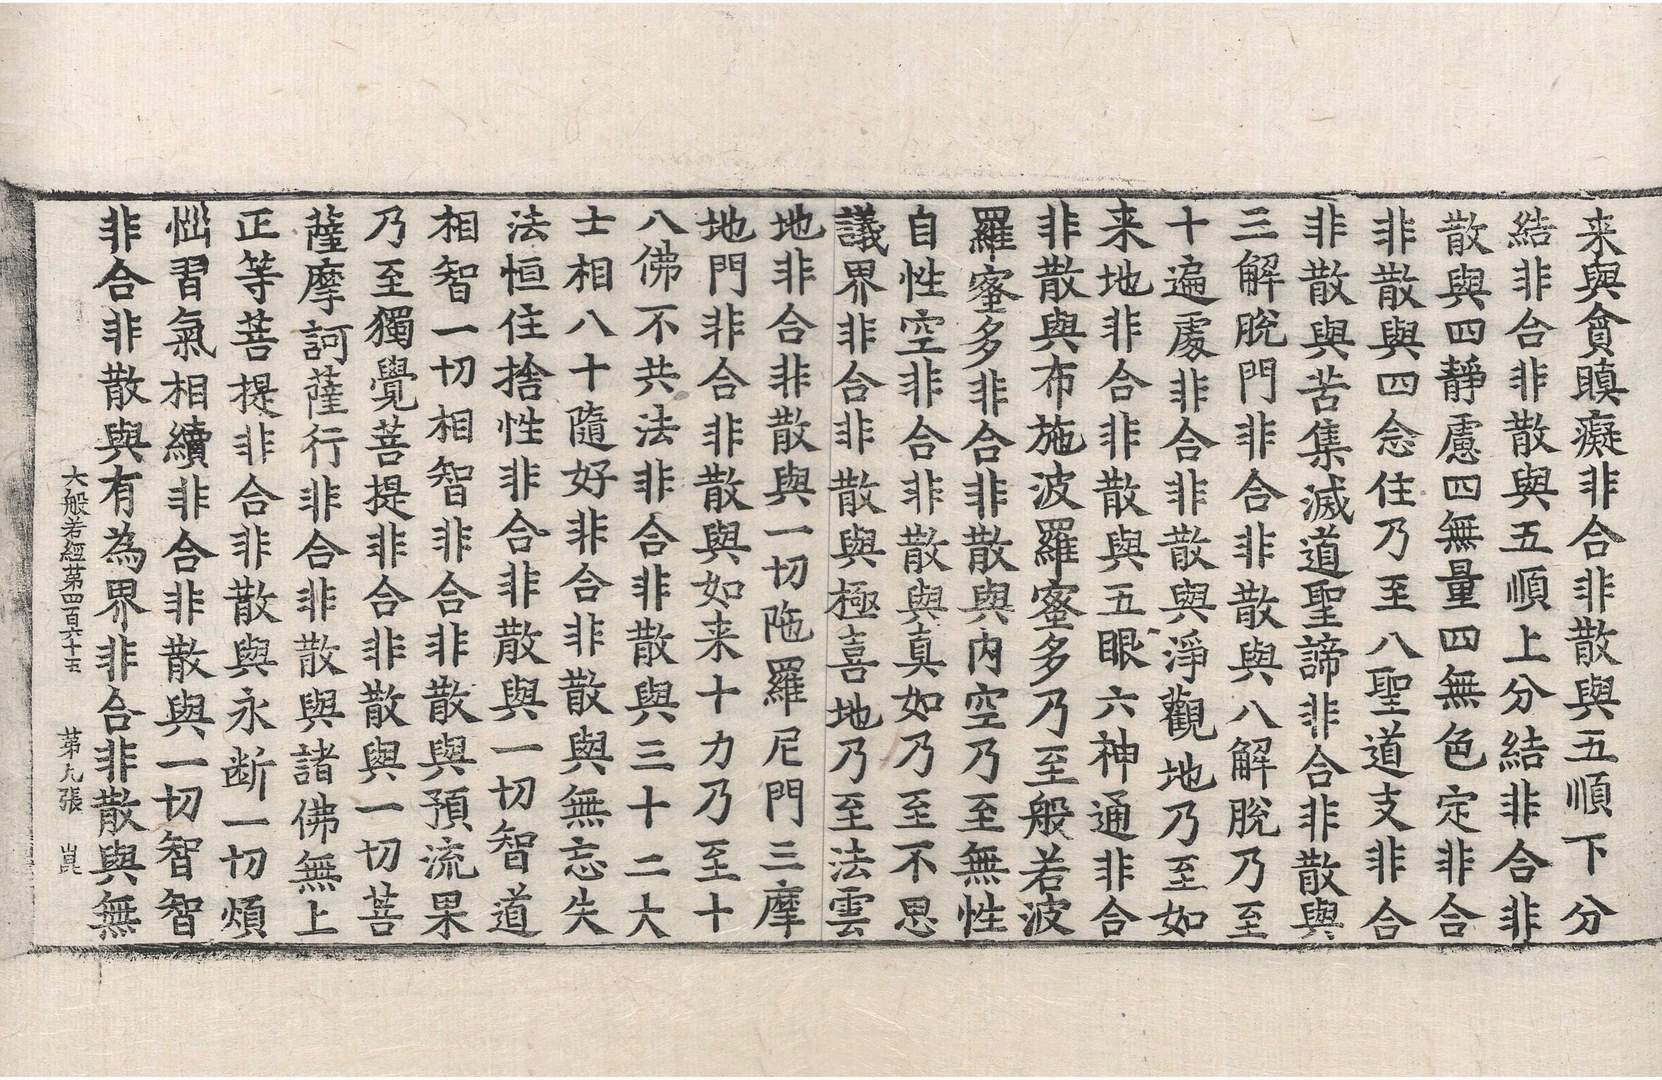 来與貪瞋癡非合非散與五順下分
結非合非散與五順上分結非合非
散與四靜慮四無量四無色定非合
非散與四念住乃至八聖道支非合
非散與苦集滅道聖諦非合非散與
三解脫門非合非散與八解脫乃至
十遍處非合非散與淨觀地乃至如
来地非合非散與五眼六神通非合
非散與布施波羅蜜多乃至般若波
羅蜜多非合非散與內空乃至無性
自性空非合非散與真如乃至不思
議界非合非散與極喜地乃至法雲
地非合非散與一切陁羅尼門三摩
地門非合非散與如来十力乃至十
八佛不共法非合非散與三十二大
士相八十隨好非合非散與無忘失
法恒住捨性非合非散與一切智道
相智一切相智非合非散與預流果
乃至獨覺菩提非合非散與一切菩
薩摩訶薩行非合非散與諸佛無上
正等菩提非合非散與永断一切煩
惱習氣相續非合非散與一切智智
非合非散與有為界非合非散與無
大般若經苐四百六十五 苐九張 崑